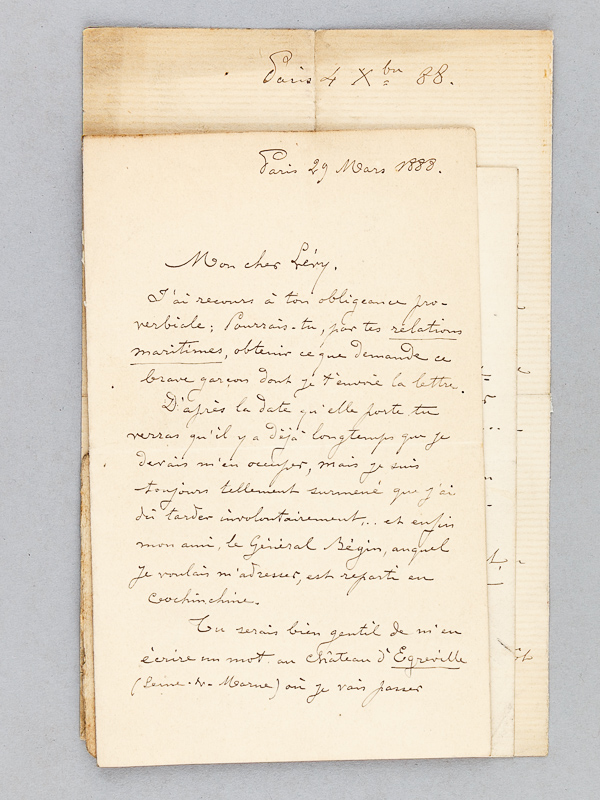 Paris 4 Xbre 88.
Paris 29 Mars 1888.
Mon cher Lévy,
J'ai recours à ton obligeance pro-
verbiale ; Pourrais-tu, par tes relations
maritimes, obtenir ce que demande ce
brave garçon dont je t'envoie la lettre.
D'après la date qu'elle porte tu
verras qu'il y a déjà longtemps que je
devais m'en occuper, mais je suis
toujours tellement surmené que j'ai
dû tarder involontairement... et enfin
mon ami, le Général Bégin, auquel
je voulais m'adresser, est reparti en
Cochinchine.
Tu serais bien gentil de m'en
écrire un mot au château d'Egreville
(Seine-&-Marne) où je vais passer